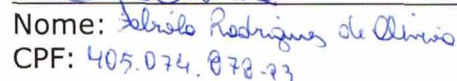 Nome: Fabíola Rodrigues de Oliveira
CPF: 405.074.878-23